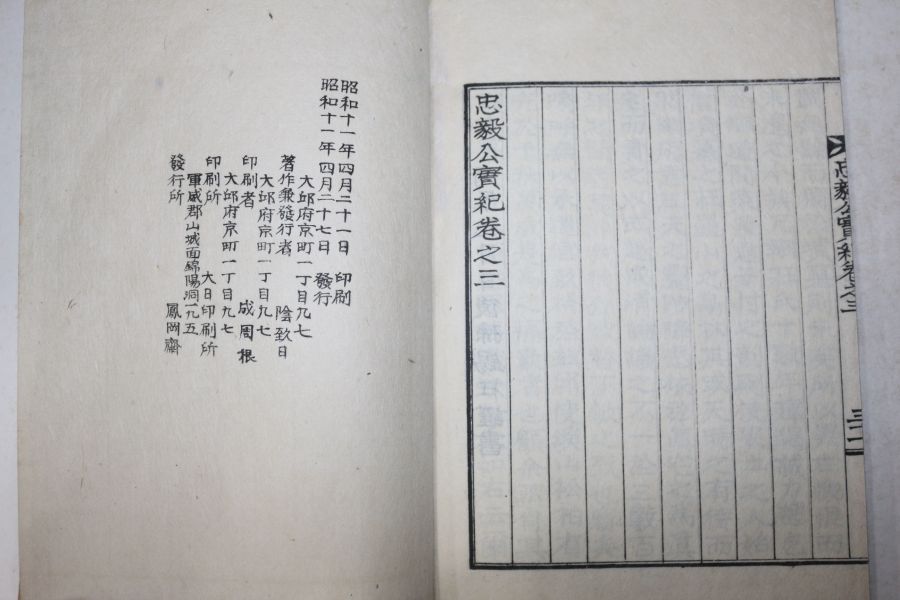 忠毅公實紀卷之三
三十一
忠毅公實紀卷之三
昭和十一年四月二十一日 印刷
昭和十一年四月二十七日 發行
大邱府京町一丁目九七
著作兼發行者 陰致日
大邱府京町一丁目九七
印刷者 成周根
大邱府京町一丁目九七
印刷所 大日印刷所
軍威郡山城面錦陽洞一九五
發行所 鳳岡齋